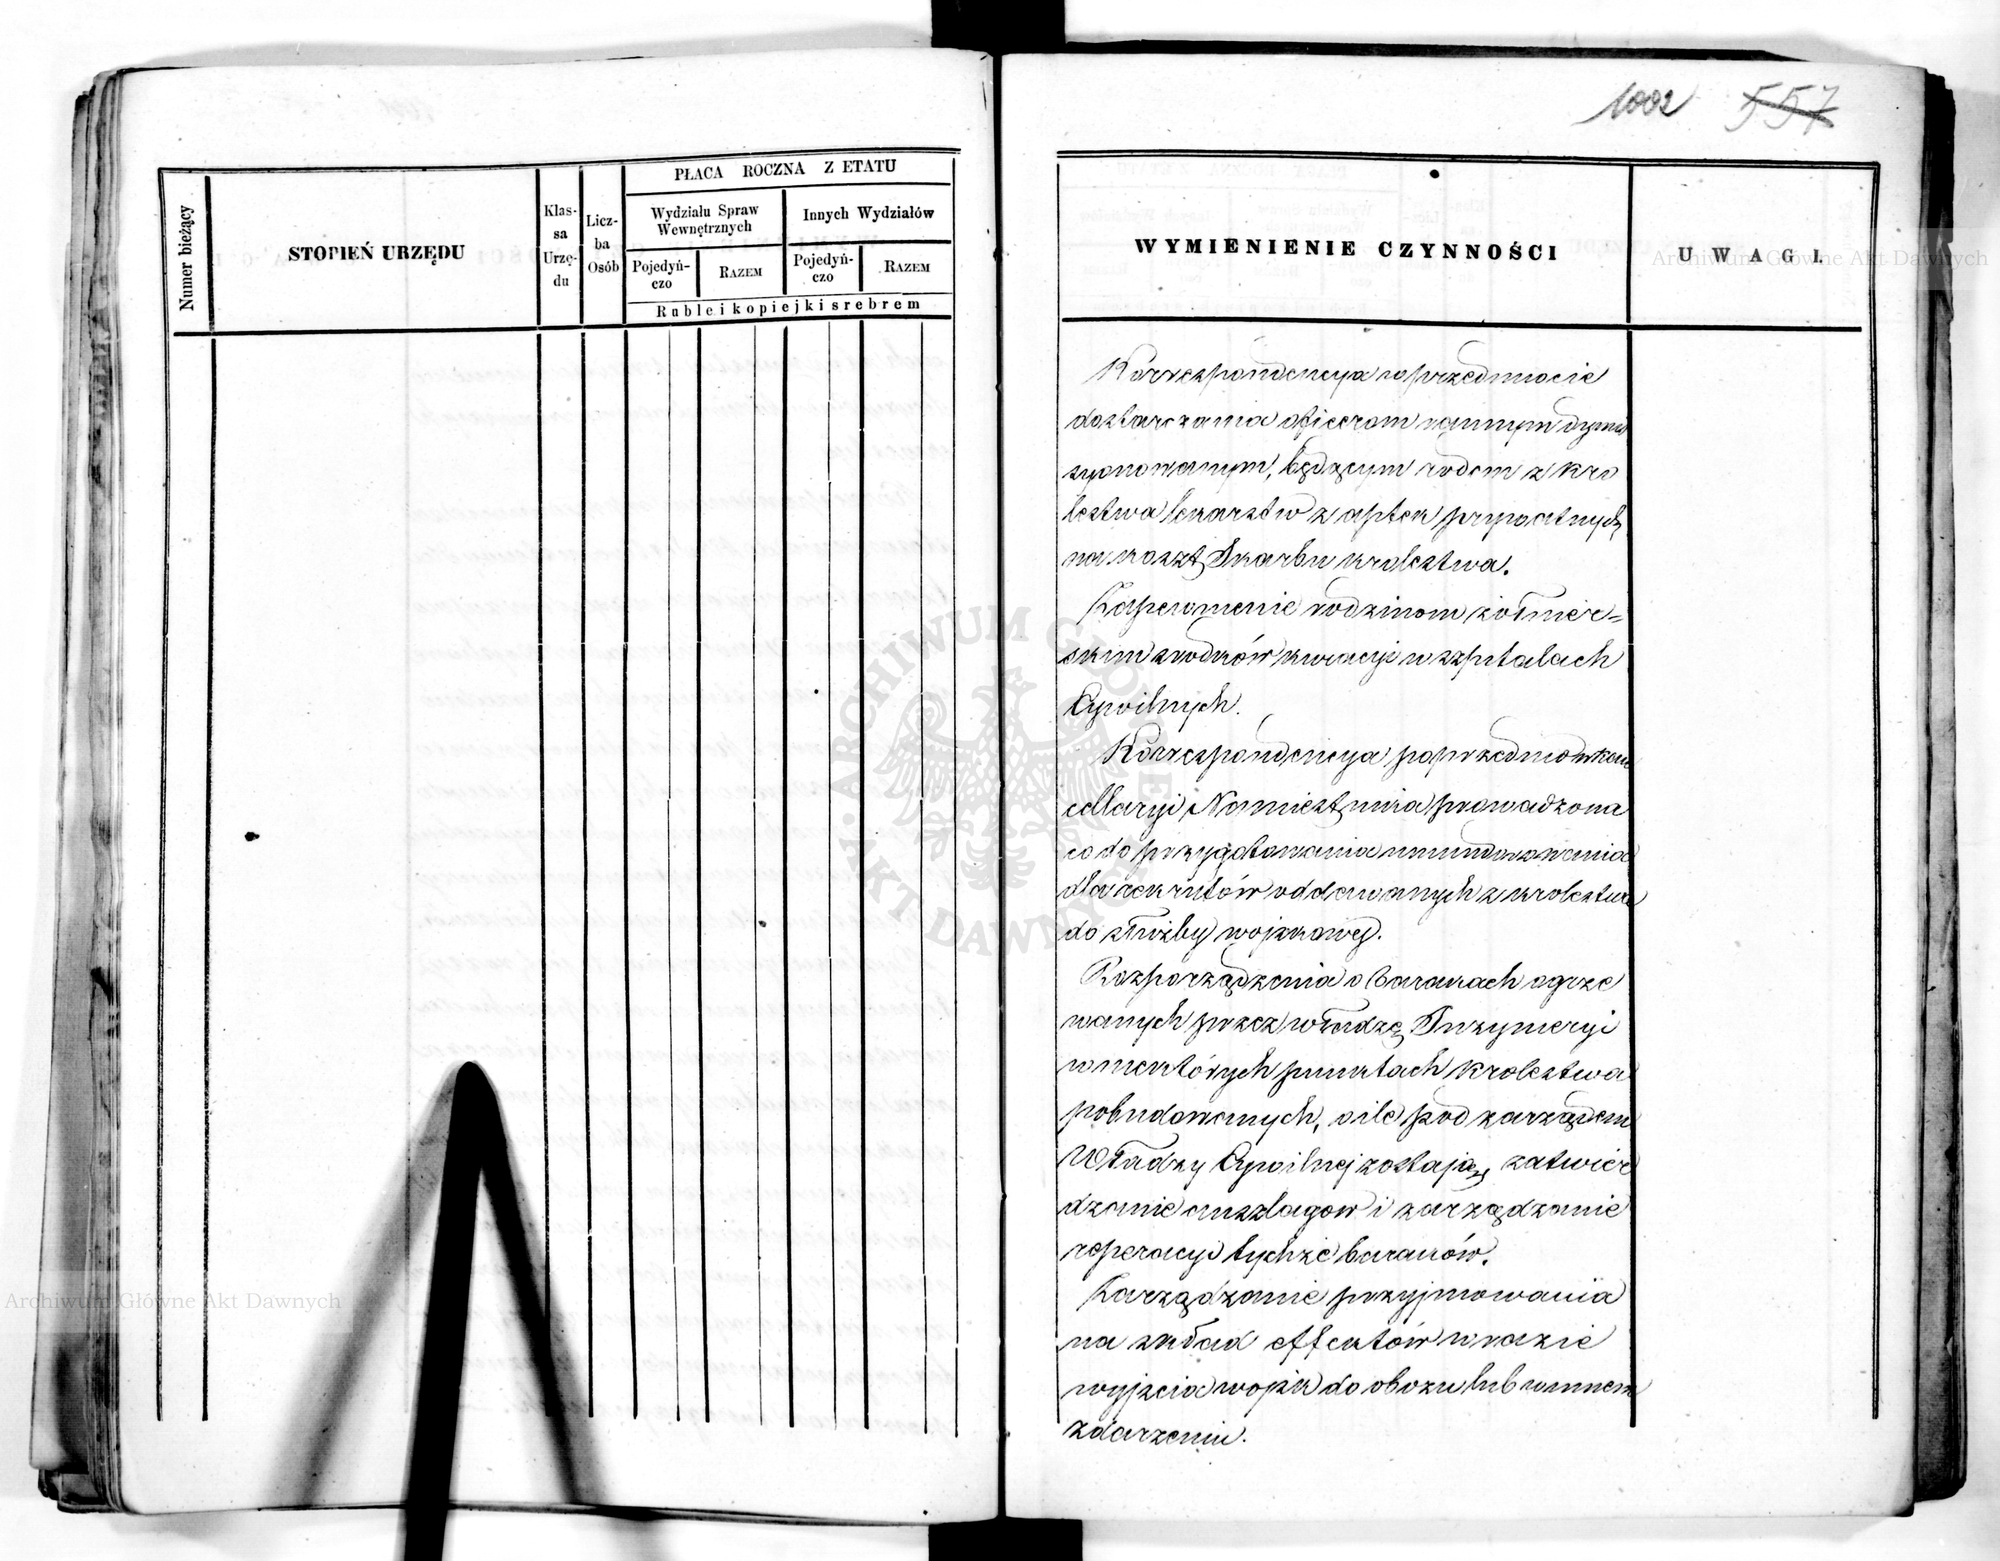 Numer bieżący
STOPIEŃ URZĘDU
Klas-
sa
Urzę-
du
Licz-
ba
Osób
PŁACA ROCZNA Z ETATU
Wydziału Spraw
Wewnętrznych
Innych Wydziałów
Pojedyń-
czo
RAZEM
Pojedyń-
czo
RAZEM
Ruble i kopiejki srebrem
1002 557
WYMIENIENIE CZYNNOŚCI
UWAGI.
Korrespondencya w przedmiocie
dostarczania oficerom rannym dymis
syonowanym, będącym rodem z Kró
lestwa lekarstw z aptek prywatnych
na koszt Skarbu Królestwa.
Zapewnienie rodzinom żołnier=
skim srodków kuracyi w szpitalach
Cywilnych.
Korrespondencya poprzednio w Kan
cellaryi Namiestnika prowadzona
co do przygotowania umundurowania
dla rekrutów oddawanych z Królestwa
do służby wojskowej.
Rozporządzenia o barakach ogrze
wanych przez władzę Inżynieryi
w niektórych punktach Królestwa
pobudowanych, o ile pod zarządem
Władzy Cywilnej zostają, zatwier
dzanie anszlagow i zarządzanie
reperacyi tychże baraków.
Zarządzanie przyjmowania
na skład effektów w razie
wyjścia wojsk do obozu lub w innem
zdarzeniu.
ARCHIWUM GŁÓWNE AKT DAWNYCH
Archiwum Główne Akt Dawnych
Archiwum Główne Akt Dawnych